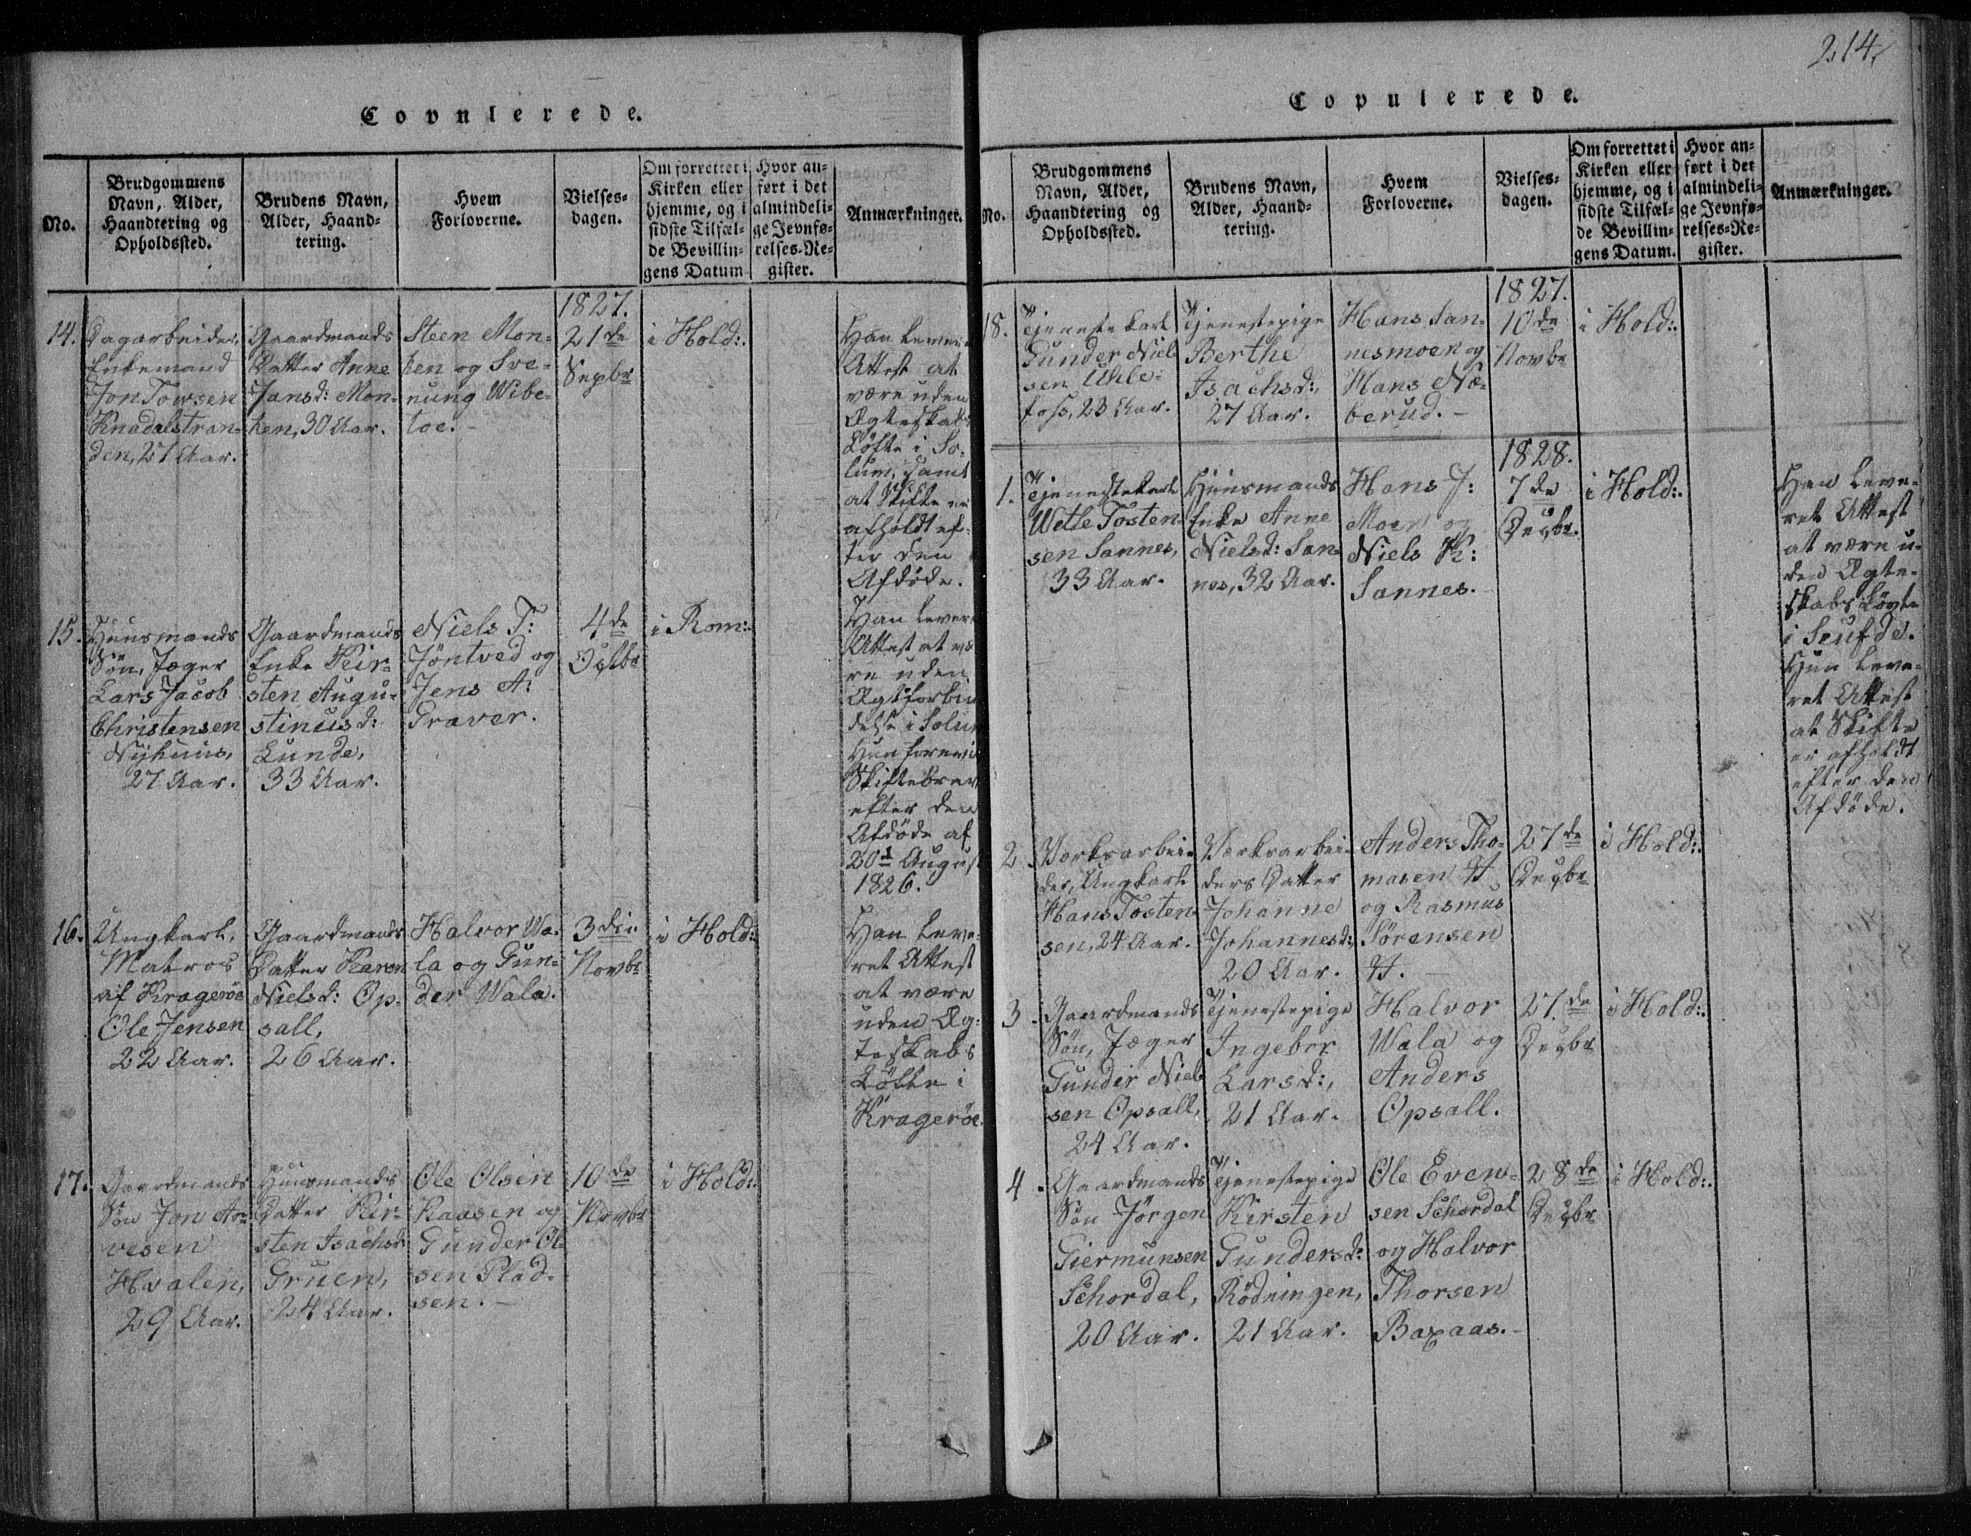 214.
Copulerede.
No.
Brudgommens
Navn, Alder,
Haandtering og
Opholdssted.
Brudens Navn,
Alder, Haand-
tering.
Hvem
Forloverne.
Vielses-
dagen.
Om forrettet i
Kirken eller
hjemme, og i
sidste Tilfæl-
de Bevillin-
gens Datum
Hvor an-
ført i det
almindeli-
ge Jevnfø-
relses-Re-
gister.
Anmærkninger.
14.
Dagarbeider,
Enkemand
Jon Towsen
Knadalstran-
den, 27 Aar.
Gaardmands
Datter Anne
Jansd: Mon-
ken, 30 Aar.
Steen Mon-
ken og Sve-
nung Wibe-
toe.-
1827.
21de
Sepbr
i Hold:.
Han levere
Attest at
være uden
Ægteskabs
Løfte i So-
lum, samt
at Skifte er
afholdt ef-
ter den
Afdøde.
15.
Huusmands
Søn, Jæger
Lars Jacob
Christensen
Nyhuus,
27 Aar.
Gaardmands
Enke Keir-
sten Augu-
stinusd:
Lunde,
33 Aar.
Niels T:
Jöntved og
Jens A:
Graver.
4de
Octbr
i Rom:.
Han levere
Attest at væ
re uden
Ægtforbin
delse i Solum
Hun forevis
Skiftebrev
efter den
Afdøde af
20d August
1826.
16.
Ungkarl,
Matros
af Kragerøe
Ole Jensen
22 Aar.
Gaardmands
Datter Karen
Nielsd: Op-
sall,
26 Aar.
Halvor Wa-
la og Gun-
der Wala.
3die
Novbr
i Hold:
Han leve-
ret Attest
at være
uden Æg-
teskabs
Løfte i
Kragerøe.
17.
Gaardmands
Søn Jon Ar-
vesen
Hvalen,
29 Aar.
Huusmands
Datter Kir-
sten Isachsd:
Gruen,
24 Aar.
Ole Olsen
Kaasen og
Gunder Ol-
sen Plad-
sen.-
10de
Novbr
i Hold:.
Copulerede.
No.
Brudgommens
Navn, Alder,
Haandtering og
Opholdssted.
Brudens Navn,
Alder, Haand-
tering.
Hvem
Forloverne.
Vielses-
dagen.
Om forrettet i
Kirken eller
hjemme, og i
sidste Tilfæl-
de Bevillin-
gens Datum.
Hvor an-
ført i det
almindeli-
ge Jevnfø-
relses-Re-
gister.
Anmærkninger.
18.
Tjenestekarl
Gunder Niel-
sen Uhle-
foss, 23 Aar.
Tjenestepige
Berthe
Isachsd:,
27 Aar.
Hans San-
nesmoen og
Hans Næ-
berud.-
1827.
10de
Novbr
i Hold:.
1.
Tjenestekarl
Wetle Tosten-
sen Sannes,
33 Aar.
Huusmands
Enke Anne
Nielsd: San-
nes, 32 Aar.
Hans J:
Moen og
Niels K:
Sannes.
1828.
7de
Decbr.
i Hold:.
Han leve-
ret Attest
at være u-
den Ægte-
skabs Løfte
i Seufde.
Hun leve-
ret Attest
at Skifte
er afholdt
efter den
Afdøde.
2.
Værksarbei-
der, Ungkarl
Hans Tosten-
sen, 24 Aar.
Værksarbei-
ders Datter
Johanne
Johannesd:,
20 Aar.
Anders Tho-
masen
og Rasmus
Sörensen
27de
Decbr
i Hold:.
3.
Gaardmands
Søn, Jæger
Gunder Niel-
sen Opsall,
24 Aar.
Tjenestepige
Ingebor
Larsd:,
21 Aar.
Halvor
Wala og
Anders
Opsall.
27.de
Decbr
i Hold:.
4.
Gaardmands
Søn Jørgen
Giermunsen
Schordal,
20 Aar.
Tjenestepige
Kirsten
Gundersd:
Rødningen,
21 Aar.
Ole Even-
sen Schordal
og Halvor
Thorsen
Baxaas.-
28de
Decbr
i Hold:.